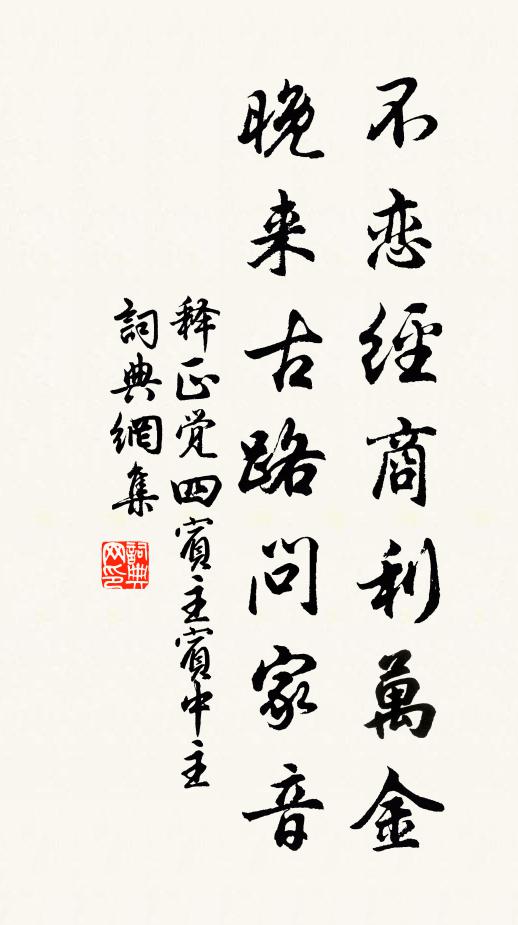 不恋經商利萬金
晚来古路問家音
释正覚四賓主賓中主
詞典網集
詞典网印